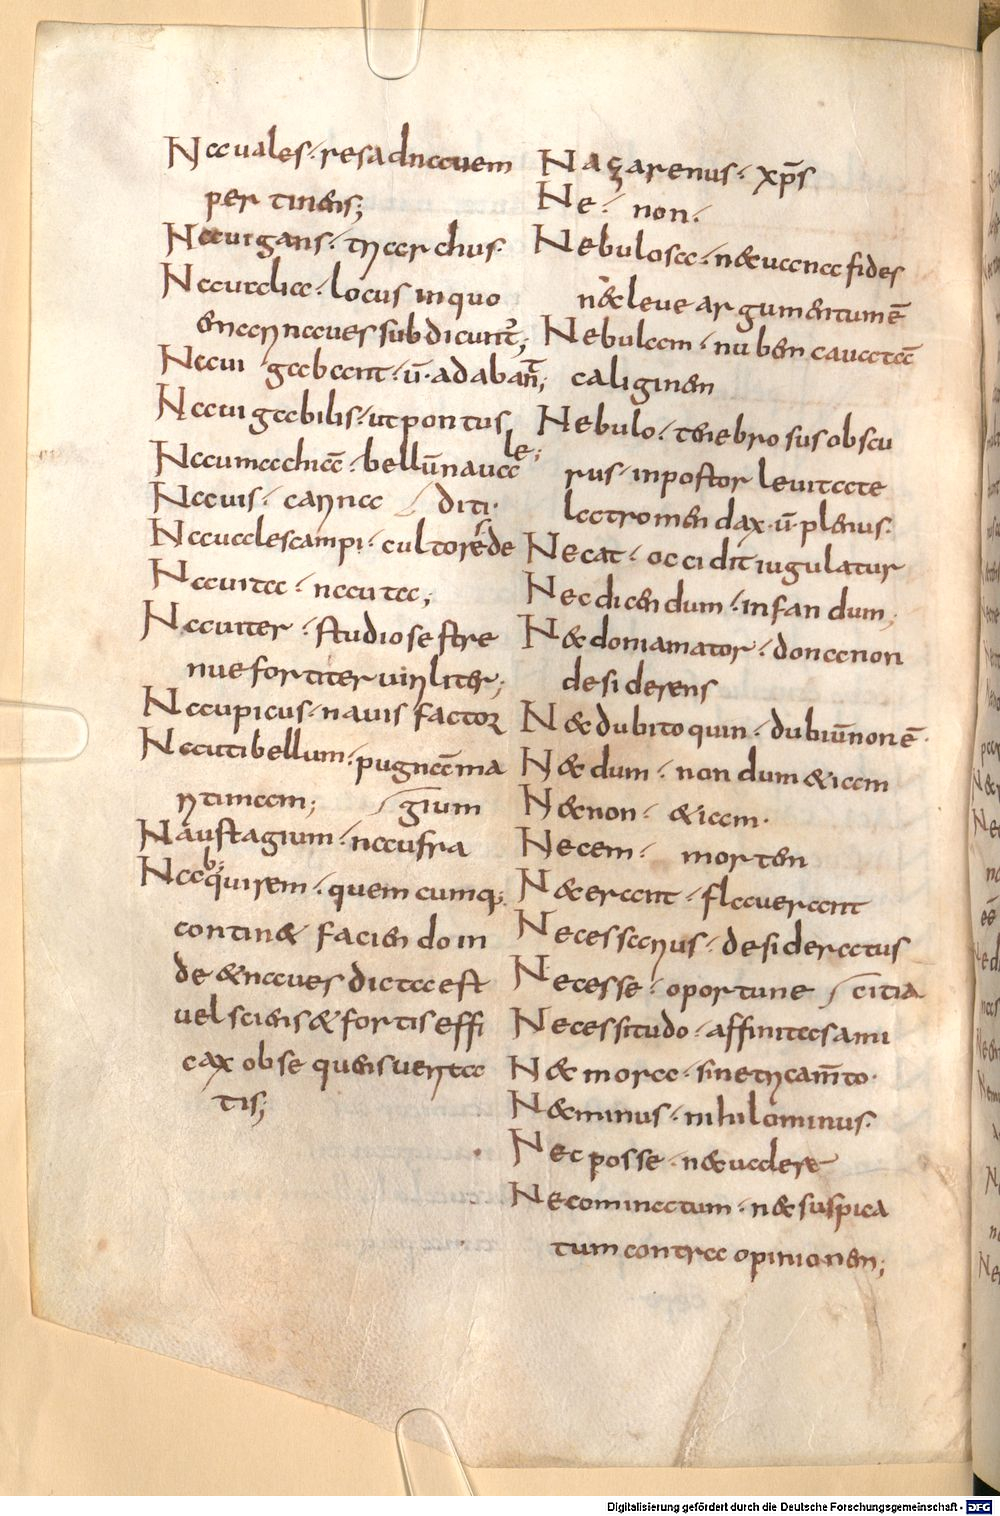 Nauales· res ad nauem
pertinens;
Nauigans· triarchus·
Naualia· locus in quo
enarinaues subdicunt᷑;
Nauigabant· ū· adabant̄;
Nauigabilis· ut pontus
Naumachiā· bellū naua le;
Nauis· carina diti·
Nauales campi· cultores de
Nauita· nauta;
Nauiter· studiose stre
nue fortiter uiriliter;
Naupicus· nauis factor
Nauti bellum· pugnā ma
ritimam; gium
Naustagium· naufra
quirem· quem cumq;
contin& faciendo in
de & naues dicta est
uel sciens & fortis effi
cax obsequens uerita
tis;
Nazarenus· xp̄s
Ne· non·
Nebulosa· n& uana fides
n&leue argumentum ē
Nebulam· nubem cauatā
caliginem
Nebulo· tenebrosus obscu
rus· inpostor leuita &e
latro mendax· ū· plenus·
Necat· occidit iugulatur
Nec dicendum· infandum;
N&doniamator· donanon
desiderens
N&dubito quin· dubiū non ē·
N&dum· non dum & iam
N&non· & iam·
Necem· mortem
N&erant· flauerant
Necessarius· desideratus
Necesse· oportune citia
Necessitudo· affinitas ami
N&mora· sine tricam̄to·
N&minus· nihilominus·
Nec posse· n& ualere
Necominatum· n& suspica
tum contra opinionem;
Digitalisierung gefördert durch die Deutsche Forschungsgemeinschaft - DFG